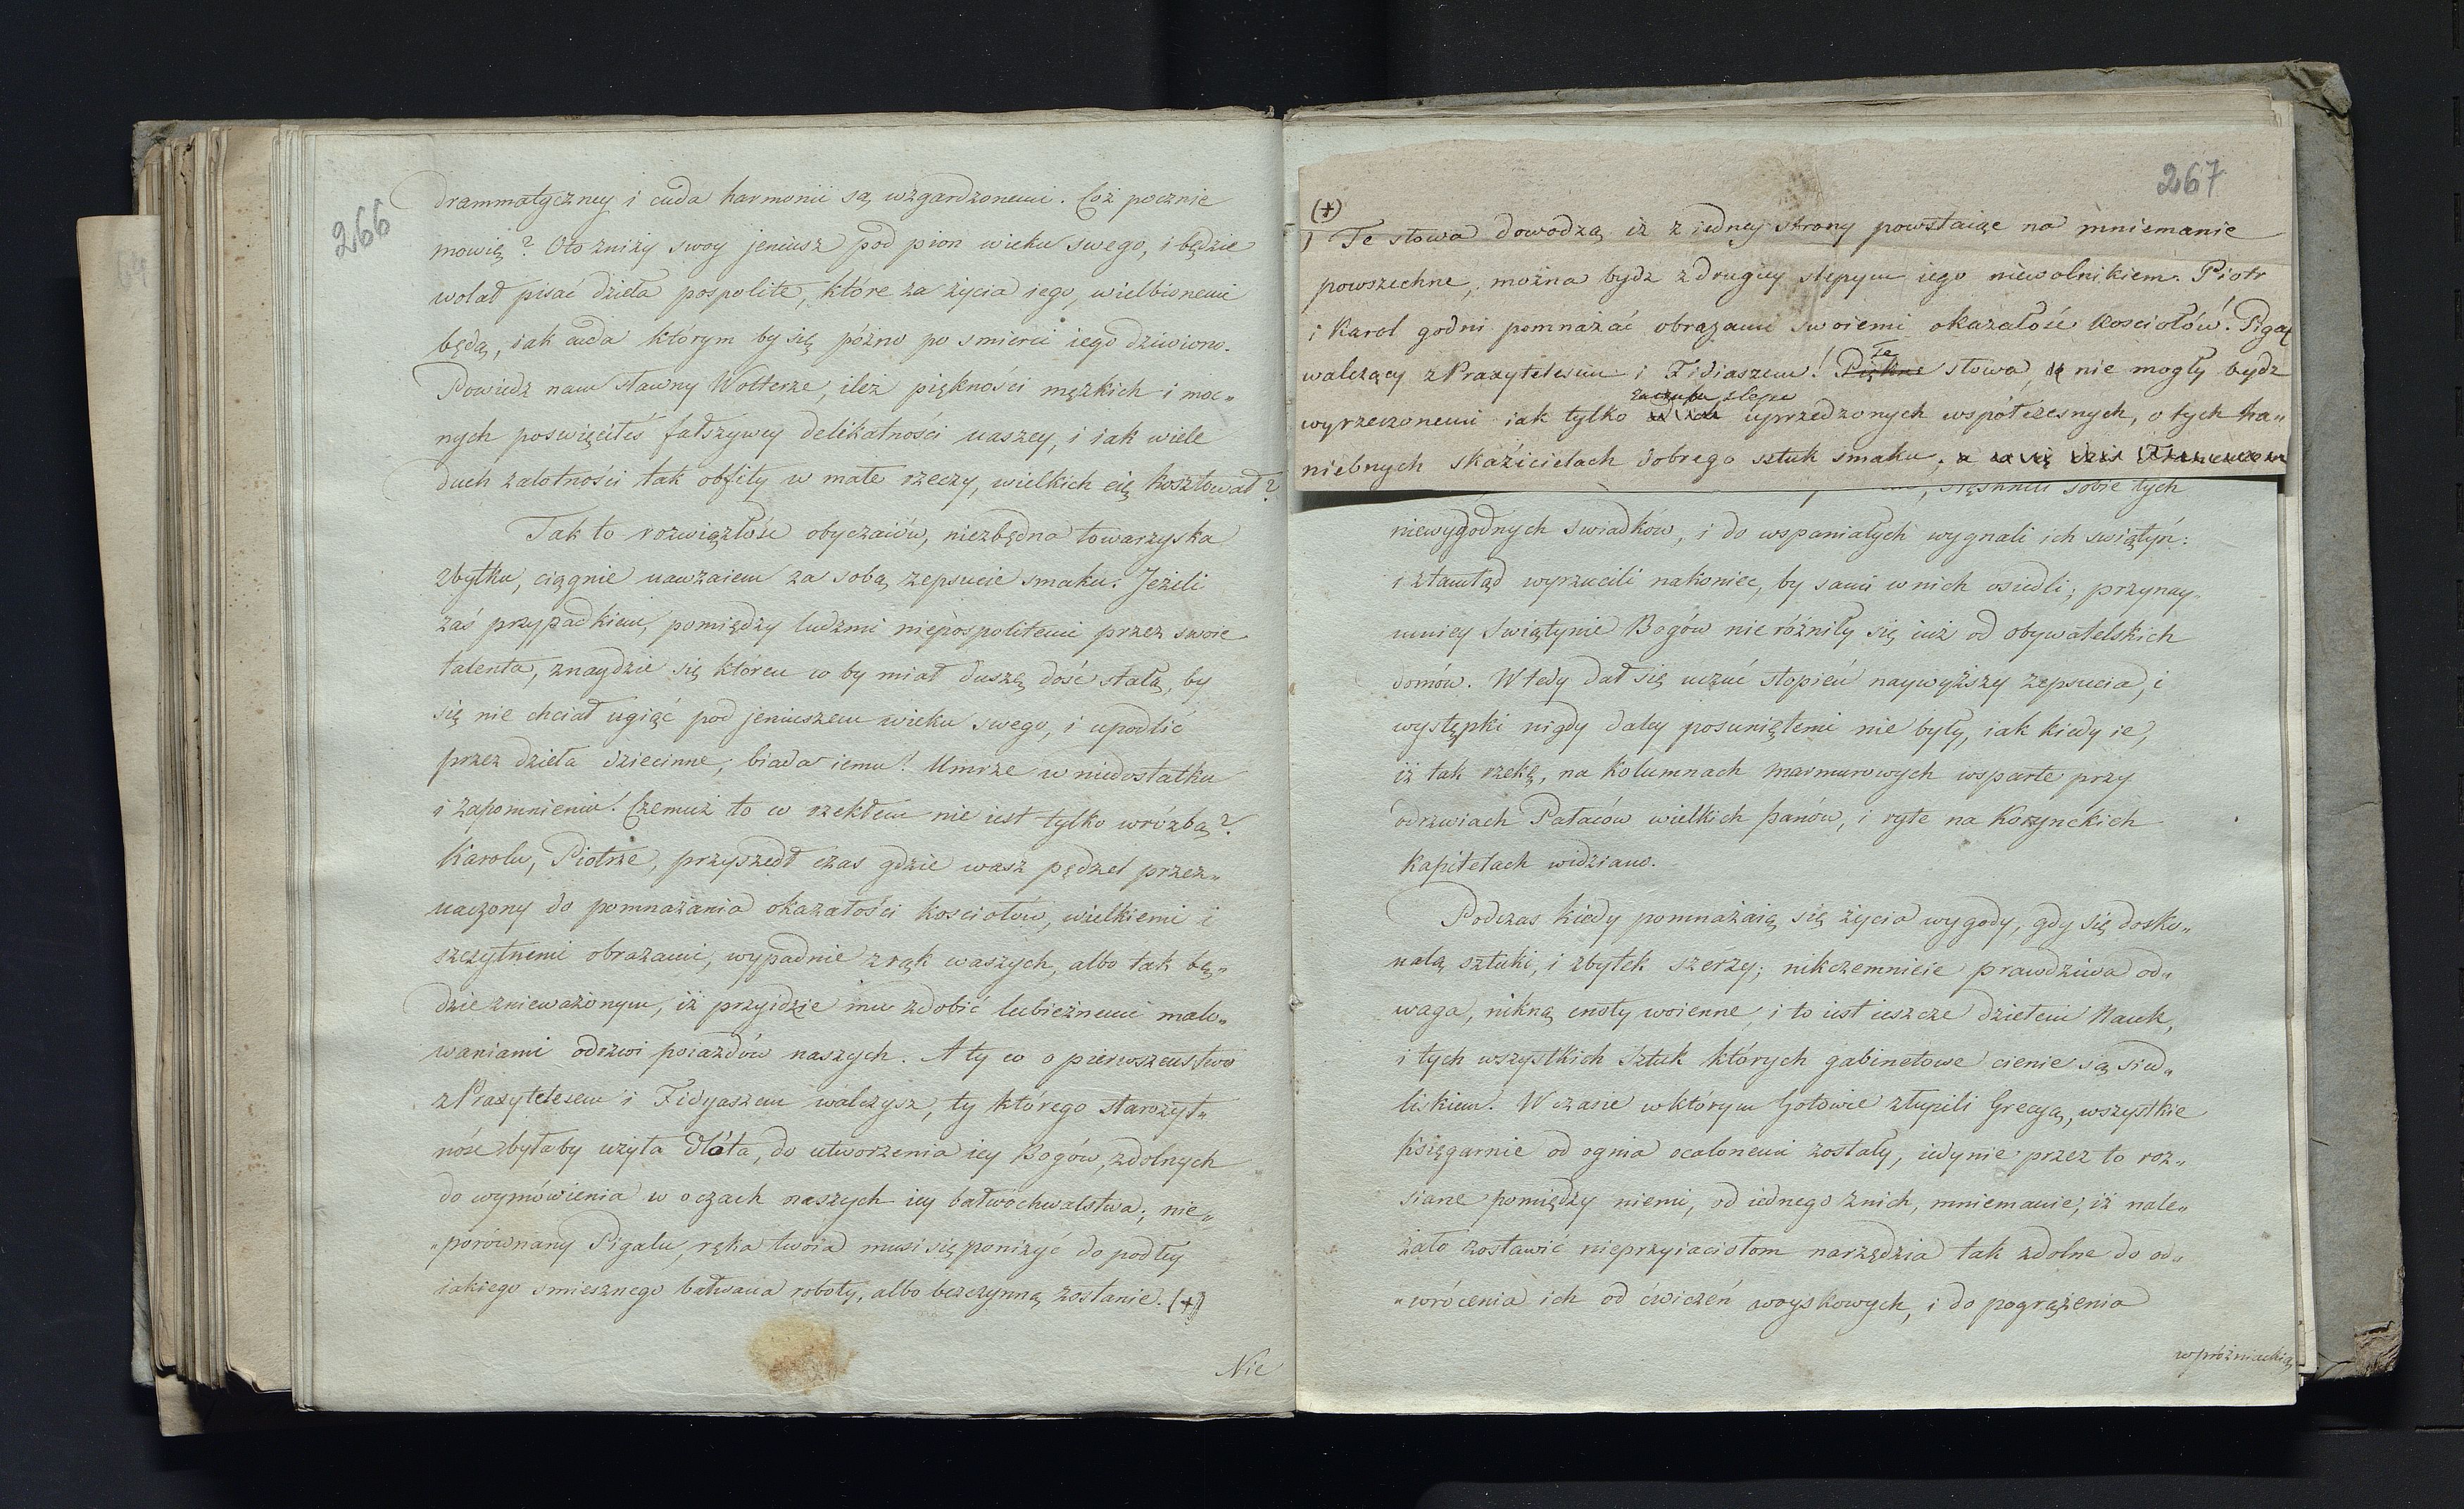 266
drammatyczney i cuda harmonii są wzgardzonemi. Coż pocznie
mowię? Oto zniży swoy jeniusz pod pion wieku swego, i będzie
wolał pisać dzieła pospolite, które za życia iego, wielbionemi
będą, iak cuda którym by się późno po smierci iego dziwiono.
Powiedz nam sławny Wolterze, ileż piękności męzkich i moc„
nych poswięciłeś fałszywey delikatności naszey, i iak wiele
duch zalotności tak obfity w małe rzeczy, wielkich cię kosztował?
Tak to rozwiązłość obyczaiów, niezbędna towarzyska
zbytku, ciągnie nawzaiem za sobą zepsucie smaku. Jeżeli
zaś przypadkiem, pomiędzy ludzmi niepospolitemi przez swoie
talenta, znaydzie się któren co by miał duszę dość stałą, by
się nie chciał ugiąć pod jeniuszem wieku swego, i upodlić
przez dzieła dziecinne; biada iemu! Umrze w niedostatku
i zapomnieniu! Czemuż to co rzekłem nie iest tylko wrozbą?
Karolu, Piotrze, przyszedł czas gdzie wasz pędzel przez„
naczony do pomnażania okazałości kosciołów, wielkiemi i
szczytnemi obrazami, wypadnie z rąk waszych, albo tak bę„
dzie znieważonym, iż przyidzie mu zdobić lubieżnemi malo„
waniami odrzwi poiazdów naszych. A ty co o pierwszeństwo
z Praxytelesem i Fidyaszem walczysz, ty którego starożyt„
ność byłaby użyła dłóta, do utworzenia iey Bogów, zdolnych
do wymówienia w oczach naszych iey bałwochwalstwa; nie„
„porównany Pigalu, ręka twoia musi się poniżyć do podłey
iakiego smiesznego bałwana roboty, albo bezczynną zostanie. (+)
Nie
267
(+)
) Te słowa dowodzą iż z iedney strony powstaiąc na mniemanie
powszechne, można bydz z drugiey slepym iego niewolnikiem. Piotr
i Karol godni pomnażać obrazami swoiemi okazałość kosciołów! Pigal
walczący z Praxytelesem i Fidiaszem! Piękne Te słowa, nie mogły bydz
wyrzeczonemi iak tylko slepo uprzedzonych współczesnych, o tych ha„
niebnych skazicielach dobrego sztuk smaku,
sobie tych
niewygodnych swiadków, i do wspaniałych wygnali ich swiątyń:
i ztamtąd wyrzucili nakoniec, by sami w nich osiedli; przynay„
mniey swiątynie Bogów nie różniły się iuż od obywatelskich
domów. Wtedy dał się uczuć stopień naywyższy zepsucia, i
występki nigdy daley posuniętemi nie były, iak kiedy ie,
iż tak rzekę, na kolumnach marmurowych wsparte przy
odrzwiach Pałaców wielkich panów, i ryte na Korynckich
kapitelach widziano.
Podczas kiedy pomnażaią się życia wygody, gdy się dosko„
nalą sztuki, i zbytek szerzy; nikczemnieie prawdziwa od„
waga, nikną cnoty woienne, i to iest ieszcze dziełem Nauk,
i tych wszystkich Sztuk których gabinetowe cienie są sied„
liskiem. W czasie w którym Gotowie złupili Grecyą, wszystkie
księgarnie od ognia ocalonemi zostały, iedynie przez to roz„
siane pomiędzy niemi, od iednego z nich, mniemanie, iż nale„
żało zostawić nieprzyiaciołom narzędzia tak zdolne do od„
„wrócenia ich od ćwiczeń woyskowych, i do pogrążenia
w próżniacką